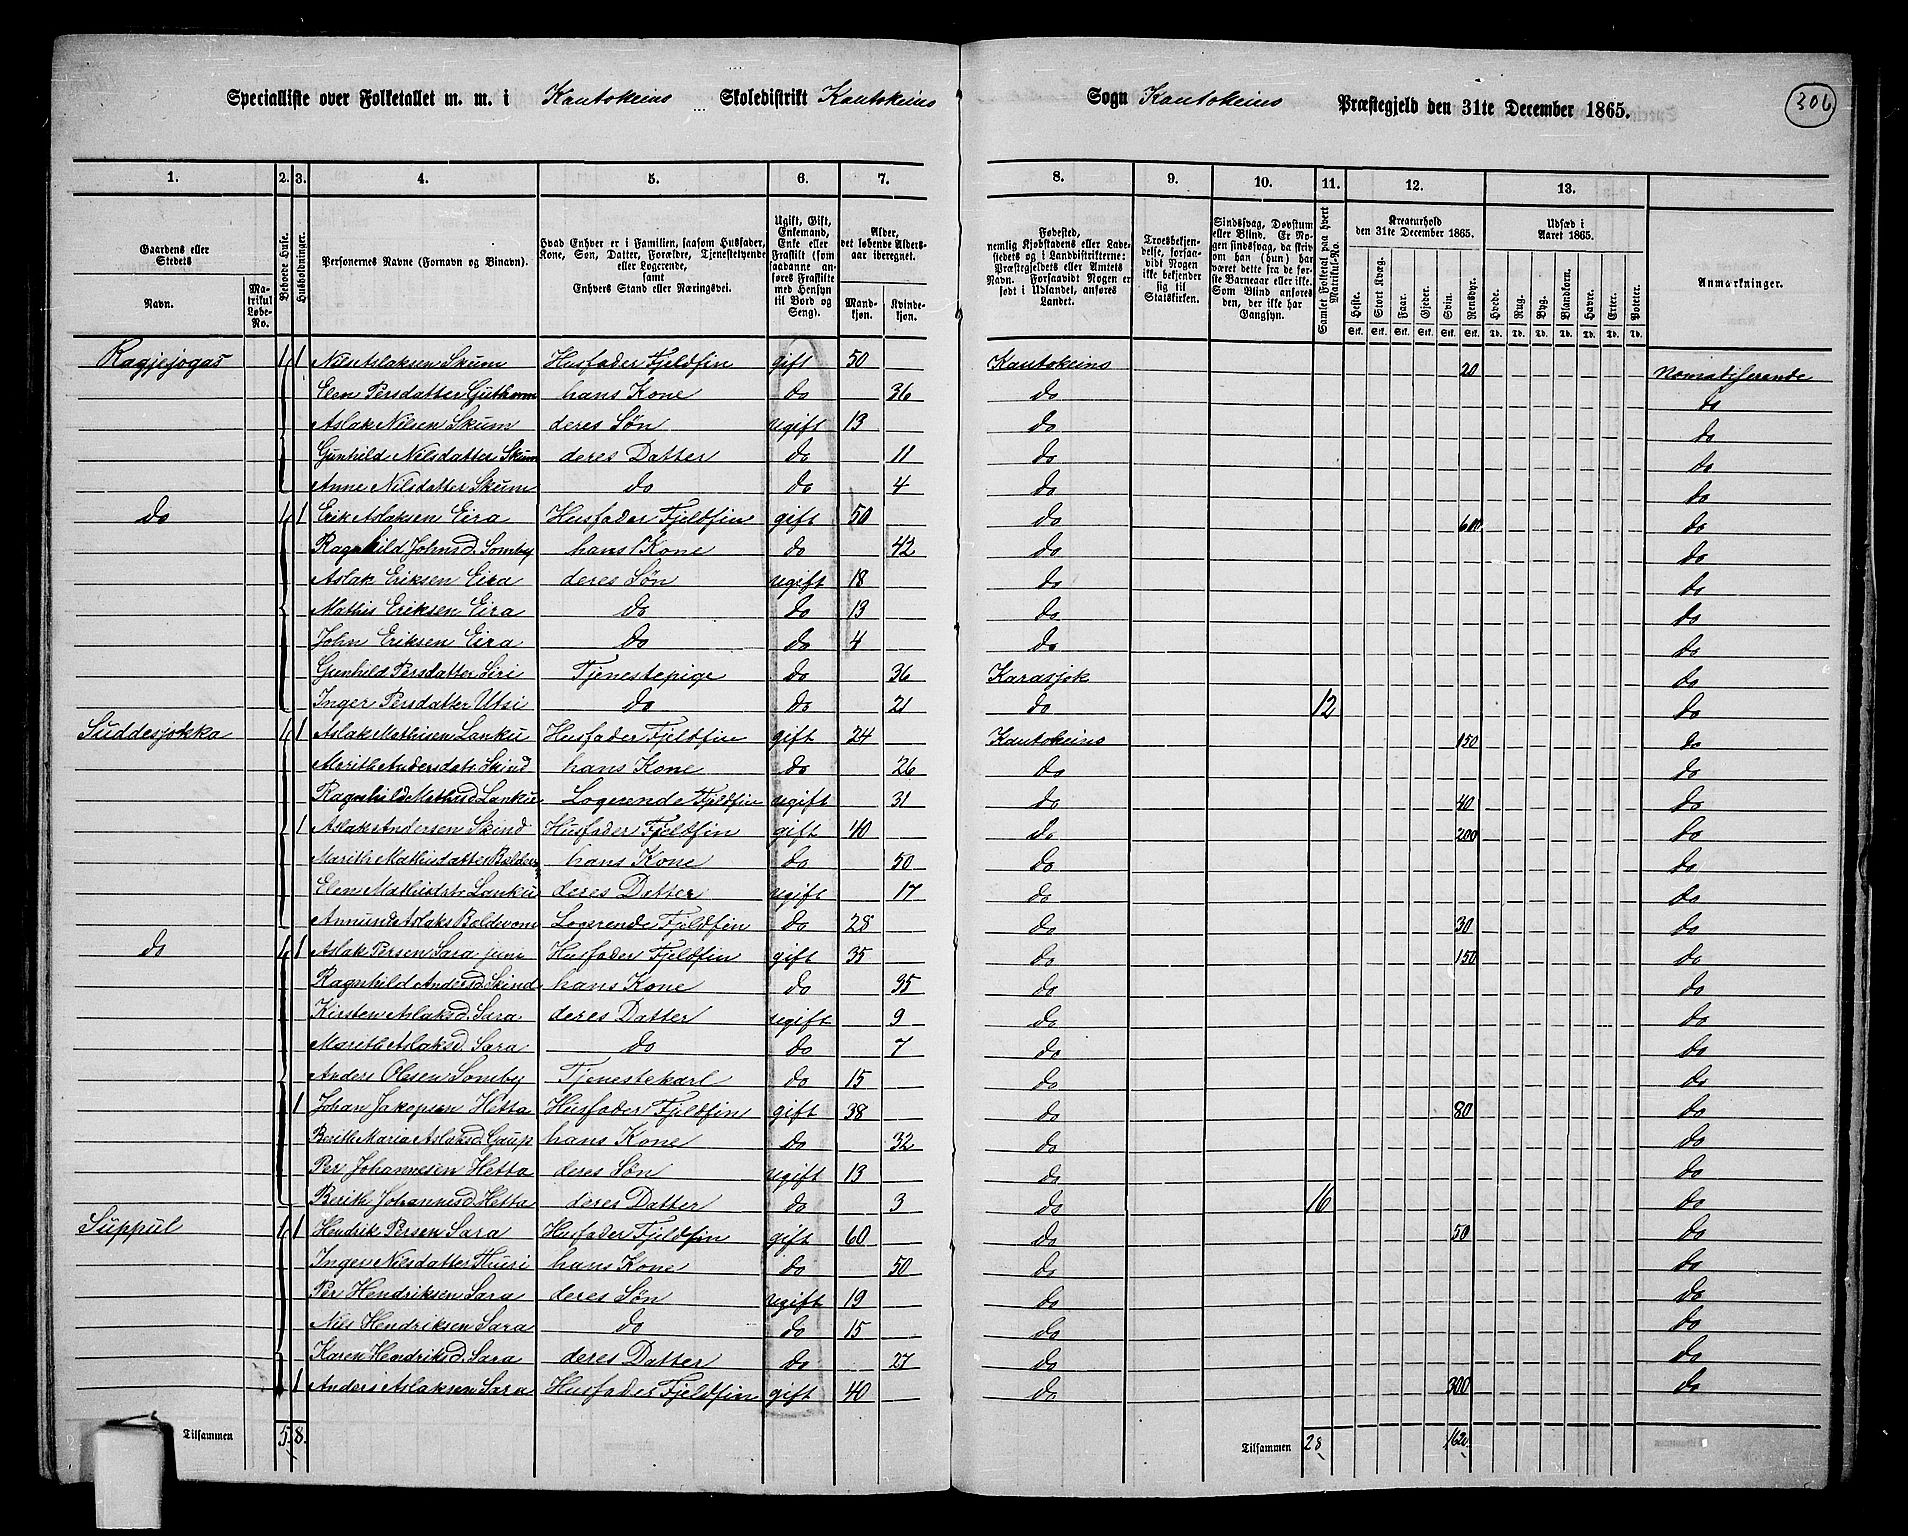 Specialliste over Folketallet m. m. i Kautokeins Skoledistrikt Kautokeins Sogn Kautokeins Præstegjeld den 31te December 1865. 306
1. 2. 3. 4. 5. 6. 7. 8. 9. 10. 11. 12. 13.
Gaardens eller Stedets
Navn. Matrikul Løbe-No.
Beboede Huse.
Husholdninger.
Personernes Navne (Fornavn og Binavn).
Hvad Enhver er i Familien, saasom Husfader, Kone, Søn, Datter, Forældre, Tjenestetyende eller Logerende, samt Enhvers Stand eller Næringsvei.
Ugift, Gift, Enkemand, Enke eller Fraskilt (som saadanne anføres Fraskilte med Hensyn til Bord og Seng).
Alder, det løbende Alders-aar iberegnet.
Mand-kjøn. Kvinde-kjøn.
Fødested, nemlig Kjøbstadens eller Ladestedets og i Landdistrikterne: Præstegjeldets eller Amtets Navn. Forsaavidt Nogen er født i Udlandet, anføres Landet.
Troesbekjendelse, forsaavidt Nogen ikke bekjender sig til Statskirken.
Sindssvag, Døvstum eller Blind. Er Nogen sindssvag, da skriv om han (hun) har været dette fra de første Barneaar eller ikke. Som Blind anføres den, der ikke har Gangsyn.
Samlet Folketal paa hvert Matrikul-No.
Kreaturhold den 31te December 1865.
Heste. Stort Kvæg. Faar. Gjeder. Svin. Rensdyr.
Stk. Stk. Stk. Stk. Stk. Stk.
Udsæd i Aaret 1865.
Hvede. Rug. Byg. Blandkorn. Havre. Erter. Poteter.
Td. Td. Td. Td. Td. Td. Td.
Anmærkninger.
Ragjejogas 1 1 Nils Aslaksen Skum Husfader Fjeldfin gift 50 Kautokeins 20 Nomatiserende
Elen Persdatter Guthorm hans Kone do 36 do do
Aslak Nilsen Skum deres Søn ugift 13 do do
Gunhild Nilsdatter Skum deres Datter do 11 do do
Anne Nilsdatter Skum do do 4 do do
do 1 1 Erik Aslaksen Eira Husfader Fjeldfin gift 50 do 600 do
Ragnhild Johnsd. Somby hans Kone do 42 do do
Aslak Eriksen Eira deres Søn ugift 18 do do
Mathis Eriksen Eira do do 13 do do
John Eriksen Eira do do 4 do do
Gunhild Persdatter Siri Tjenestepige do 36 Karasjok do
Inger Persdatter Utsi do do 21 do 12 do
Suddesjokka 1 1 Aslak Mathisen Lanku Husfader Fjeldfin gift 24 Kautokeins 150 do
Marith Andersdatr. Skind hans Kone do 26 do do
Ragnhild Mathisd Lanku Logerende Fjeldfin ugift 31 do 40 do
1 Aslak Andersen Skind Husfader Fjeldfin gift 40 do 200 do
Marith Mathisdatter hans Kone do 50 do do
Elen Mathisdatr. Lanku deres Datter ugift 17 do do
Amund Aslaks Baldevom Logerende Fjeldfin do 28 do 30 do
do 1 1 Aslak Persen Sara Husfader Fjeldfin gift 35 do 150 do
Ragnhild Andersd. Skind hans Kone do 35 do do
Kirsten Aslaksd. Sara deres Datter ugift 9 do do
Mareth Aslaksd. Sara do do 7 do do
Anders Olesen Somby Tjenestekarl do 15 do do
1 Johan Jakopsen Hetta Husfader Fjeldfin gift 38 do 80 do
Berith Maria Aslaksd. Gaup hans Kone do 32 do do
Per Johannesen Hetta deres Søn ugift 13 do do
Berith Johannesd. Hetta deres Datter do 3 do 16 do
Suppul 1 1 Hendrik Persen Sara Husfader Fjeldfin gift 60 do 50 do
Inger Nilsdatter Hueri hans Kone do 50 do do
Per Hendriksen Sara deres Søn ugift 19 do do
Nils Hendriksen Sara do do 15 do do
Karen Hendriksd. Sara deres Datter do 27 do do
1 Anders Aslaksen Sara Husfader Fjeldfin gift 40 do 300 do
Tilsammen 5. 8. Tilsammen 28 1620